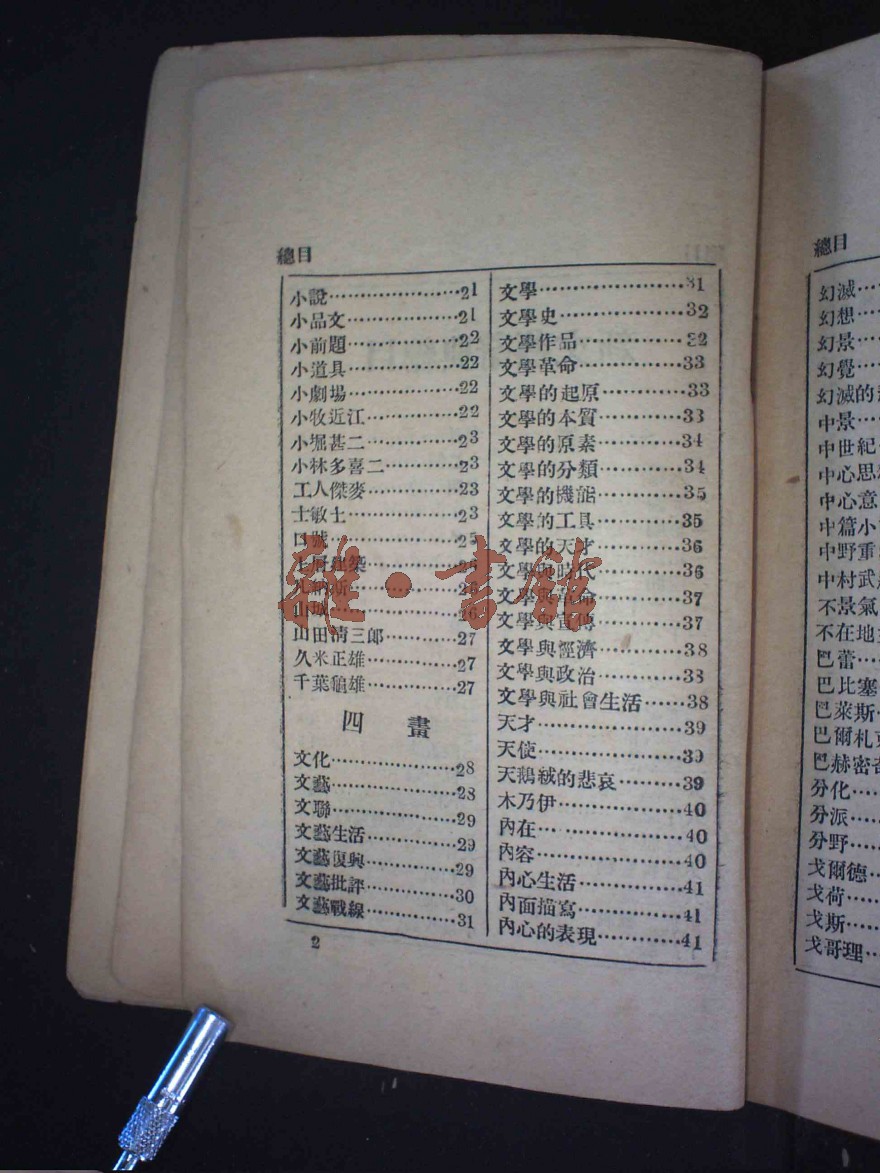 總目
小說⋯⋯⋯⋯⋯⋯21
小品文⋯⋯⋯⋯⋯21
小前題⋯⋯⋯⋯⋯22
小道具⋯⋯⋯⋯⋯22
小劇場⋯⋯⋯⋯⋯22
小牧近江⋯⋯⋯⋯22
小堀甚二⋯⋯⋯⋯23
小林多喜二⋯⋯⋯23
工人傑麥⋯⋯⋯⋯23
士敏土⋯⋯⋯⋯⋯23
口號⋯⋯⋯⋯⋯⋯25
山城⋯⋯⋯⋯⋯⋯26
山田清三郎⋯⋯⋯27
久米正雄⋯⋯⋯⋯27
千葉龜雄⋯⋯⋯⋯27
四 畫
文化⋯⋯⋯⋯⋯⋯28
文藝⋯⋯⋯⋯⋯⋯28
文聯⋯⋯⋯⋯⋯⋯29
文藝生活⋯⋯⋯⋯29
文藝復興⋯⋯⋯⋯29
文藝批評⋯⋯⋯⋯30
文藝戰線⋯⋯⋯⋯31
文學⋯⋯⋯⋯⋯⋯31
文學史⋯⋯⋯⋯⋯32
文學作品⋯⋯⋯⋯32
文學革命⋯⋯⋯⋯33
文學的起原⋯⋯⋯33
文學的本質⋯⋯⋯33
文學的原素⋯⋯⋯34
文學的分類⋯⋯⋯34
文學的機能⋯⋯⋯35
文學的工具⋯⋯⋯35
文學的天才⋯⋯⋯36
文學與時代⋯⋯⋯36
文學與革命⋯⋯⋯37
文學與宣傳⋯⋯⋯37
文學與經濟⋯⋯⋯38
文學與政治⋯⋯⋯38
文學與社會生活⋯⋯38
天才⋯⋯⋯⋯⋯⋯39
天使⋯⋯⋯⋯⋯⋯39
天鵝絨的悲哀⋯⋯39
木乃伊⋯⋯⋯⋯⋯40
內在⋯⋯⋯⋯⋯⋯40
內容⋯⋯⋯⋯⋯⋯40
內心生活⋯⋯⋯⋯41
內面描寫⋯⋯⋯⋯41
內心的表現⋯⋯⋯41
2
總目
幻滅⋯
幻想⋯
幻景⋯
幻覺⋯
幻滅的
中景⋯
中世紀
中心思
中心意
中篇小
中野重
中村武
不景氣
不在地
巴蕾⋯
巴比塞
巴萊斯
巴爾札
巴赫密
分化⋯
分派⋯
分野⋯
戈爾德
戈荷⋯
戈斯⋯
戈哥理
雜·書館